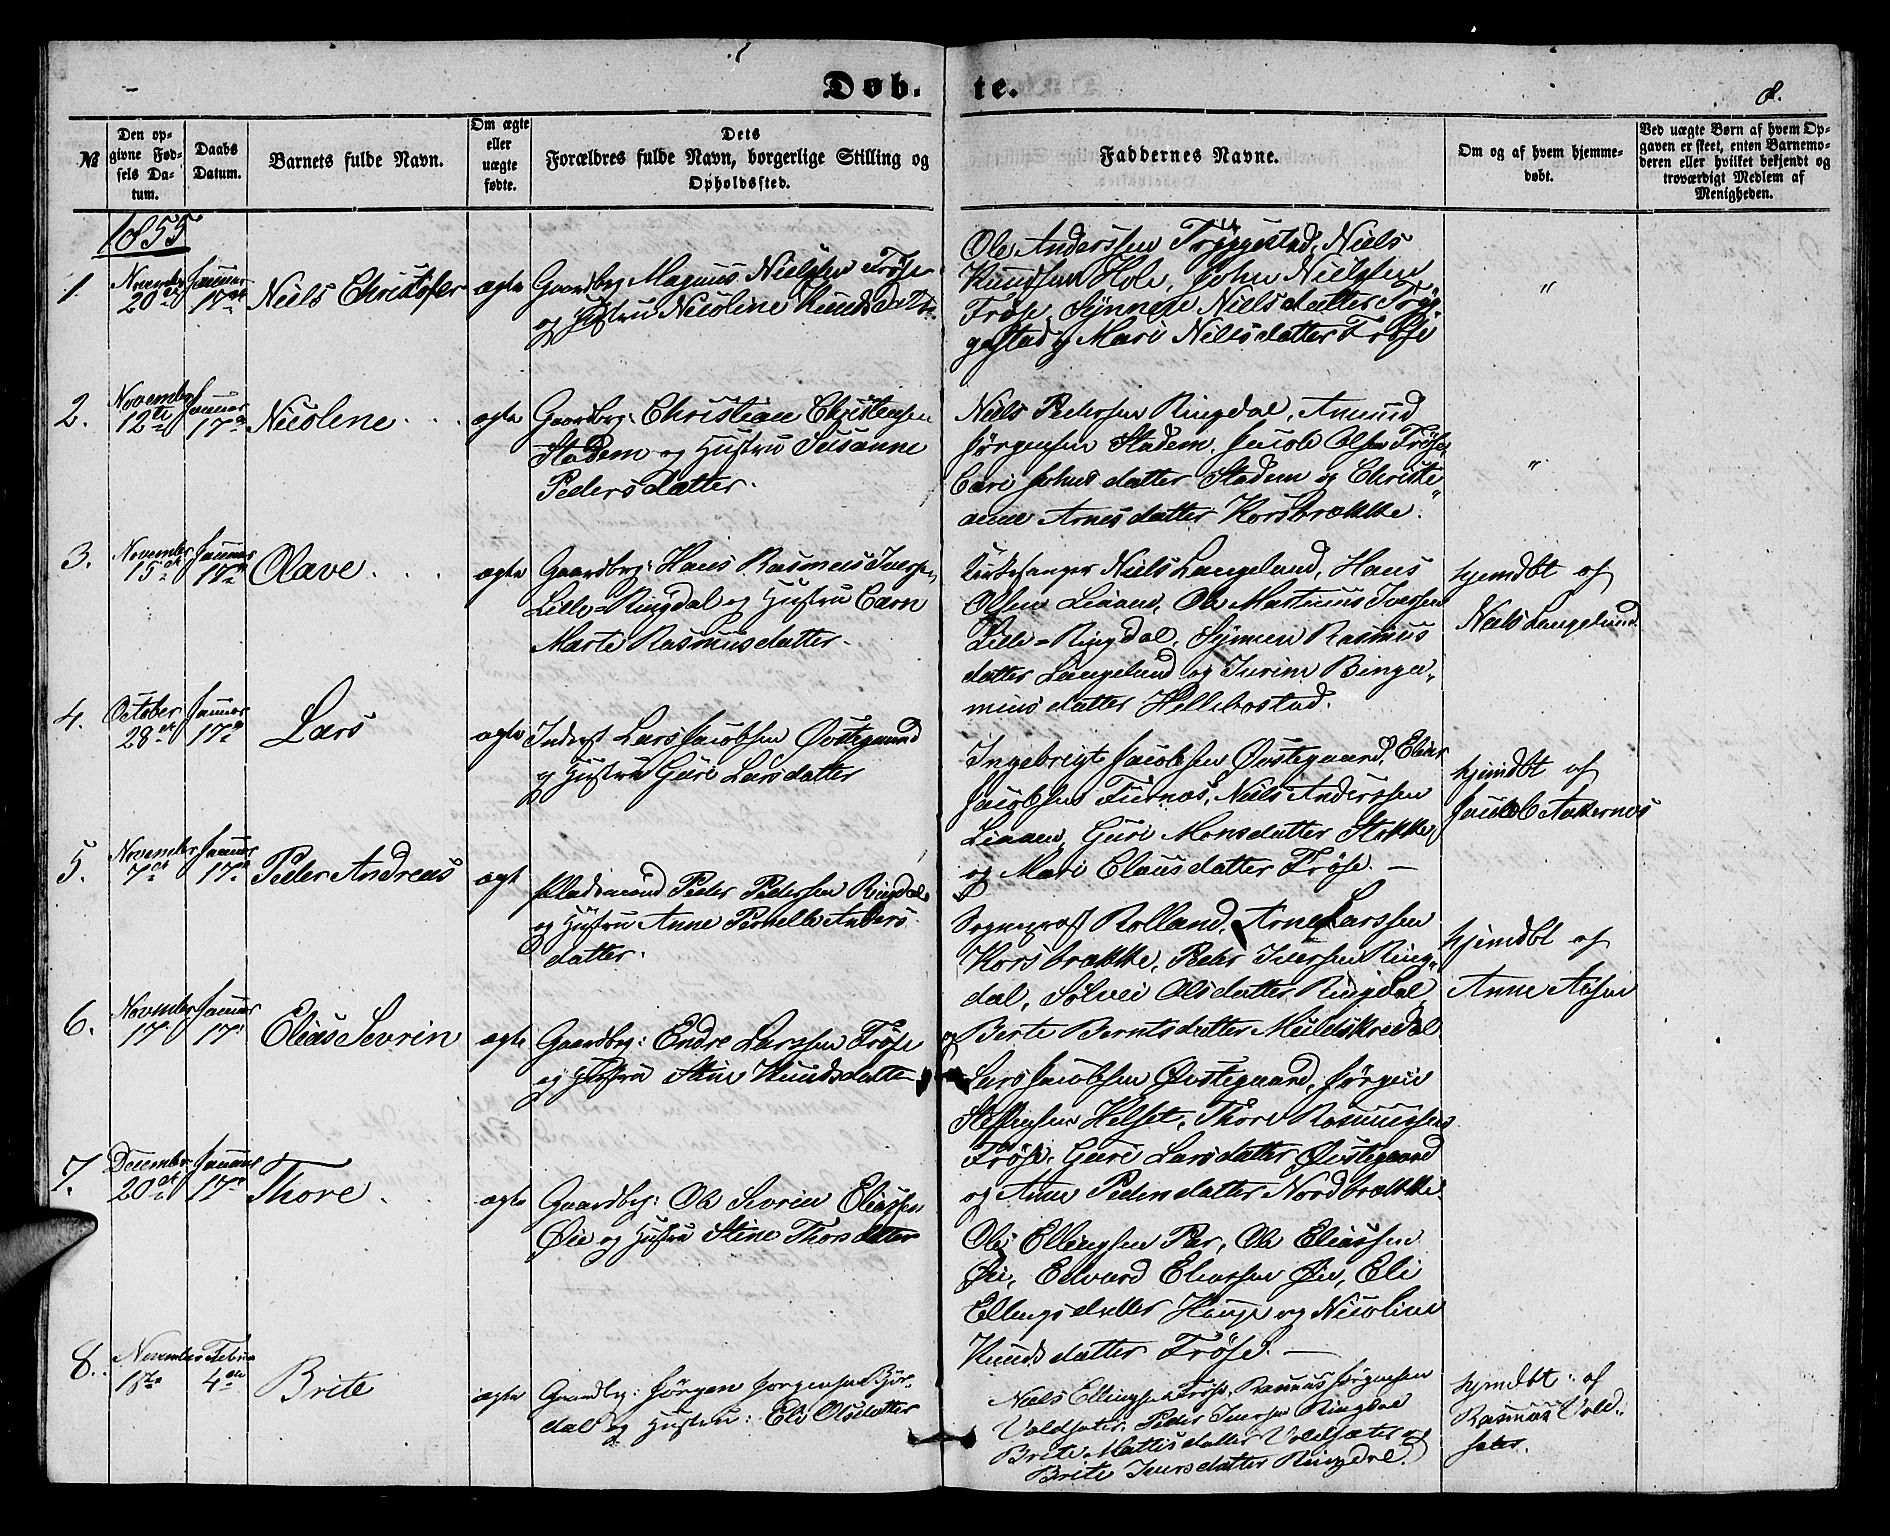 Døb-
te.
8.
№
Den op-
givne Fød-
sels Da-
tum.
Daabs
Datum.
Barnets fulde Navn.
Om ægte
eller
uægte
fødte.
Dets
Forældres fulde Navn, borgerlige Stilling og
Opholdssted.
Faddernes Navne.
Om og af hvem hjemme-
døbt.
Ved uægte Børn af hvem Op-
gaven er skeet, enten Barnemo-
deren eller hvilket bekjendt og
troværdigt Medlem af
Menigheden.
1855
1.
November
20de
Januar
17de
Niels Christofer
ægte
Gaardbr: Magnus Nielsen Frøse
og Hustru Nicoline Knudsdatter
Ole Anderssen Tryggestad, Niels
Knudsen Hole, John Nielsen
Frøse, Synneve Nielsdatter Tryg
gestad, Mari Nielsdatter Frøse
"
2.
November
12te
Januar
17de
Nicoline
ægte
Gaardbr: Christian Christensen
Stadem og Hustru Susanne
Pedersdatter.
Niels Pederssen Ringdal, Amund
Jørgensen Stadem, Jacob Olsen Frøse,
Cari Johnsdatter Stadem og Christi
anne Arnesdatter Korsbrække.
"
3.
November
15de
Januar
17de
Olave
ægte
Gaardbr: Hans Rasmus Iversen
Lille-Ringdal og Hustru Caren
Marte Rasmusdatter.
Kirkesanger Niels Langeland, Hans
Olsen Liaaen, Ole Martinus Iverssen
Lille-Ringdal, Rasmus
datter Langeland og
datter Hellebostad.
hjemdbt af
Niels Langeland
4.
October
28de
Januar
17de
Lars
ægte
Inderst Lars Jacobsen Øvstegaard
og Hustru Guri Larsdatter
Ingebrigt Jacobsen Øvstegaard, Elias
Jacobsen Furnæs, Niels Anderssen
Liaaen, Guri Monsdatter Stokke
og Mari Clausdatter Frøse. —
hjemdbt af
Jacob Aakernæs
5.
November
7de
Januar
17de
Peder Andreas
ægt
Pladsmand Peder Pederssen Ringdal
og Hustru Anne Pernelle Anders
datter.
Sogneprest Rolland, Arne Larssen
Korsbrække, Peder Iverssen Ring-
dal, Sølvei Olsdatter Ringdal
og Berte Berntsdatter Muldskredal
hjemdbt af
Anne
6.
November
17
Januar
17
Elias Sevrin
ægte
Gaardbr: Endre Larssen Frøse
og Hustru Stine Knudsdatter
Lars Jacobsen Øvstegaard, Jørgen
Steffensen Helset, Thore Rasmussen
Frøse, Guri Larsdatter Øvstegaard
og Anne Pedersdatter Nordbrække
7.
December
20de
Januar
17de
Thore
ægte
Gaardbr: Ole Sevrin Eliassen
Øie og Hustru Stine Thorsdatter
Ole Ellingsen Per, Ole Eliassen
Øie, Edvard Eliassen Øie, Eli
Ellingsdatter Hauge og Nicoline
Knudsdatter Frøse. —
8.
November
Februar
4de
Brite
ægte
Gaardbr: Jørgen Jørgensen Bjør-
dal og Hustru: Eli Olsdatter
Niels Ellingsen Frøse, Rasmus Jørgensen
Voldsæter, Peder Iversen Ringdal
Brite Mattisdatter Voldsæter og
Brite Iversdatter Ringdal
hjemdbt af
Rasmus Vold-
sæter.